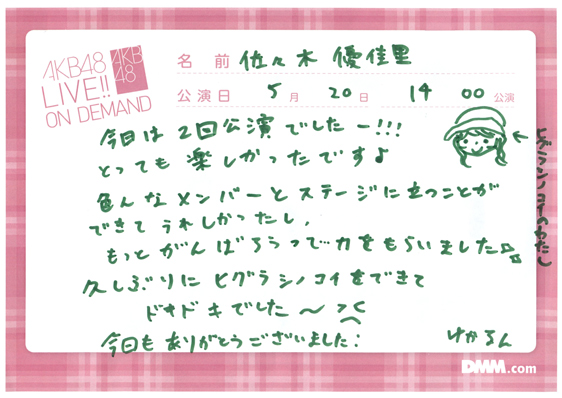 AKB48
LIVE!!
ON DEMAND
AKB
48
名前 佐々木 優佳里
公演日 5月 20日 14 00 公演
今日は2回公演でしたー!!!
とっても楽しかったです♪
色んなメンバーとステージに立つことが
できてうれしかったし、
もっとがんばろうって力をもらいました
久しぶりにヒグラシノコイをできて
ドキドキでした〜
今日もありがとうございました!
ゆかるん
←ヒグラシノコイのわたし
DMM.com